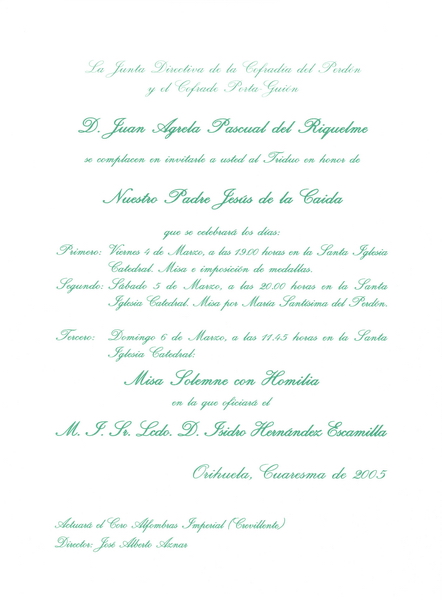 La Junta Directiva de la Cofradía del Perdón
y el Cofrade Porta-Guión
D. Juan Agrela Pascual del Riquelme
se complacen en invitarle a usted al Triduo en honor de
Nuestro Padre Jesús de la Caida
que se celebrará los días:
Primero: Viernes 4 de Marzo, a las 19.00 horas en la Santa Iglesia
Catedral. Misa e imposición de medallas.
Segundo: Sábado 5 de Marzo, a las 20.00 horas en la Santa
Iglesia Catedral. Misa por María Santísima del Perdón.
Tercero: Domingo 6 de Marzo, a las 11.45 horas en la Santa
Iglesia Catedral:
Misa Solemne con Homilia
en la que oficiará el
M. I. Sr. Lcdo. D. Isidro Hernández Escamilla
Orihuela, Cuaresma de 2005
Actuará el Coro Alfombras Imperial (Crevillente)
Director: José Alberto Aznar